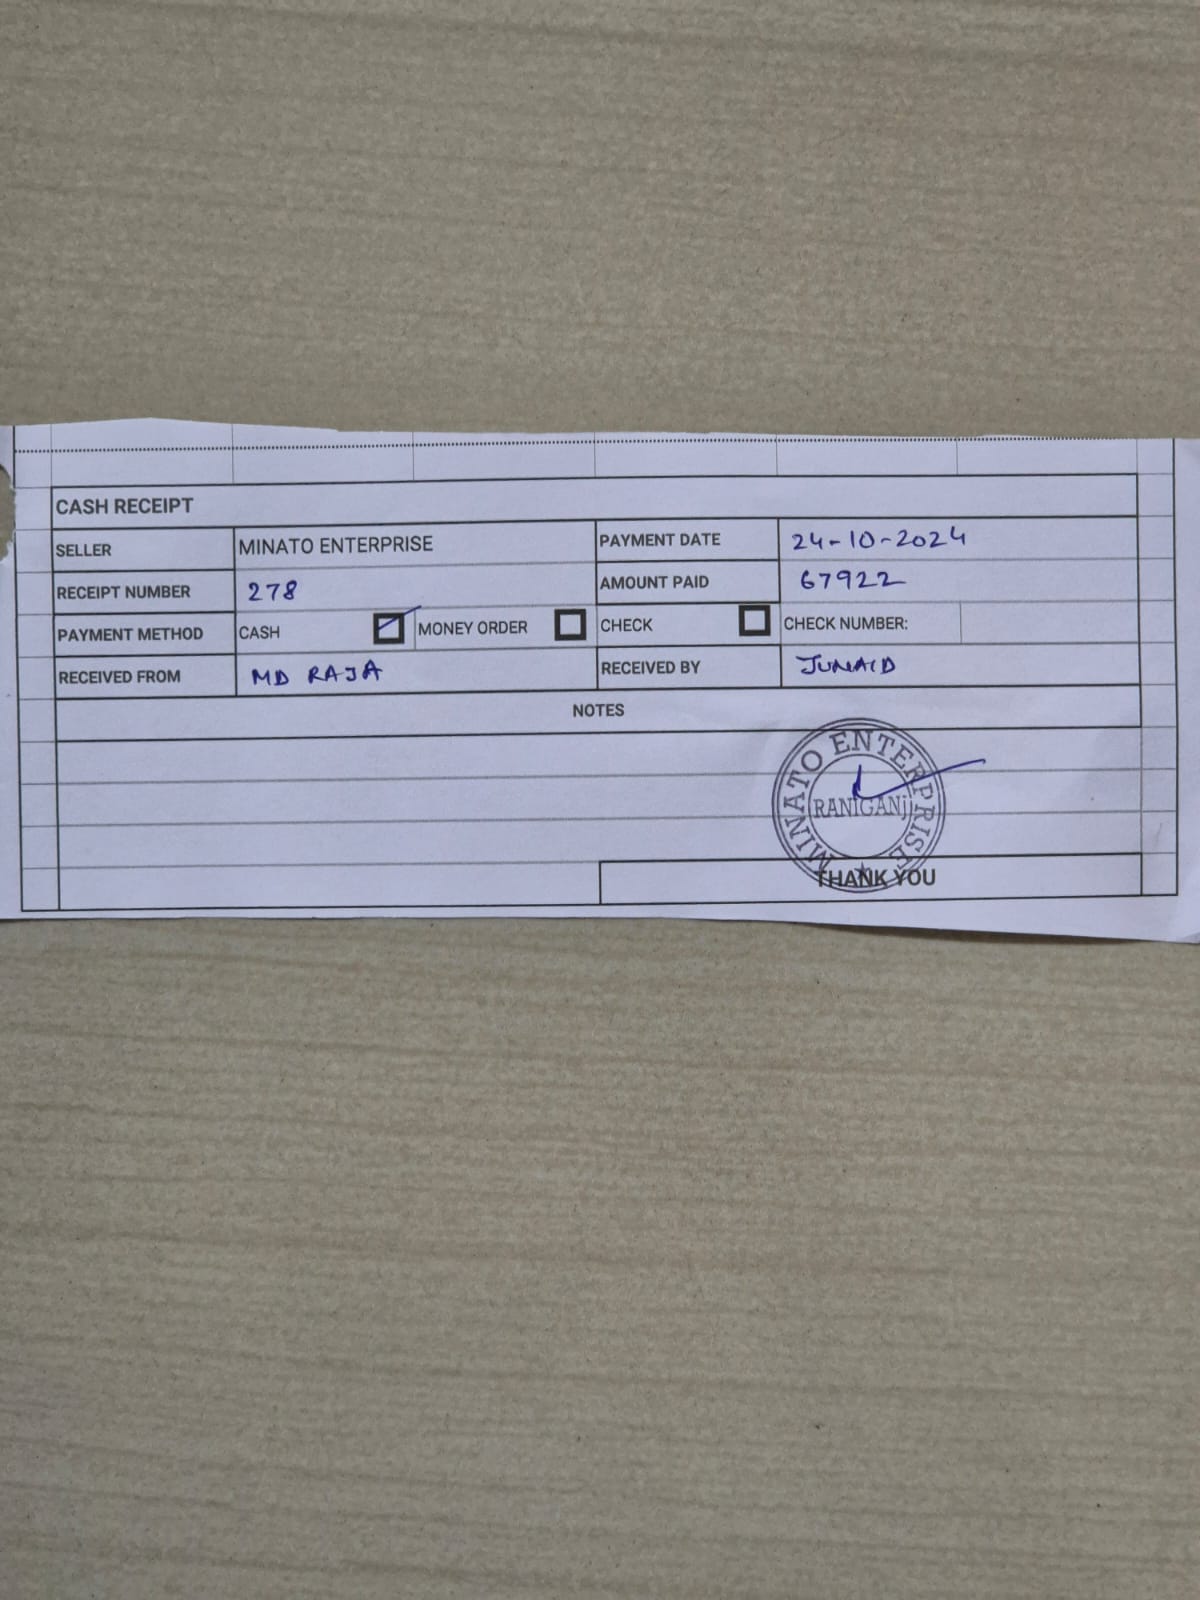 CASH RECEIPT
SELLER MINATO ENTERPRISE PAYMENT DATE 24-10-2024
RECEIPT NUMBER 278 AMOUNT PAID 67922
PAYMENT METHOD CASH MONEY ORDER CHECK CHECK NUMBER:
RECEIVED FROM MD RAJA RECEIVED BY JUNAID
NOTES
MINATO ENTERPRISE
RANIGANj
THANK YOU